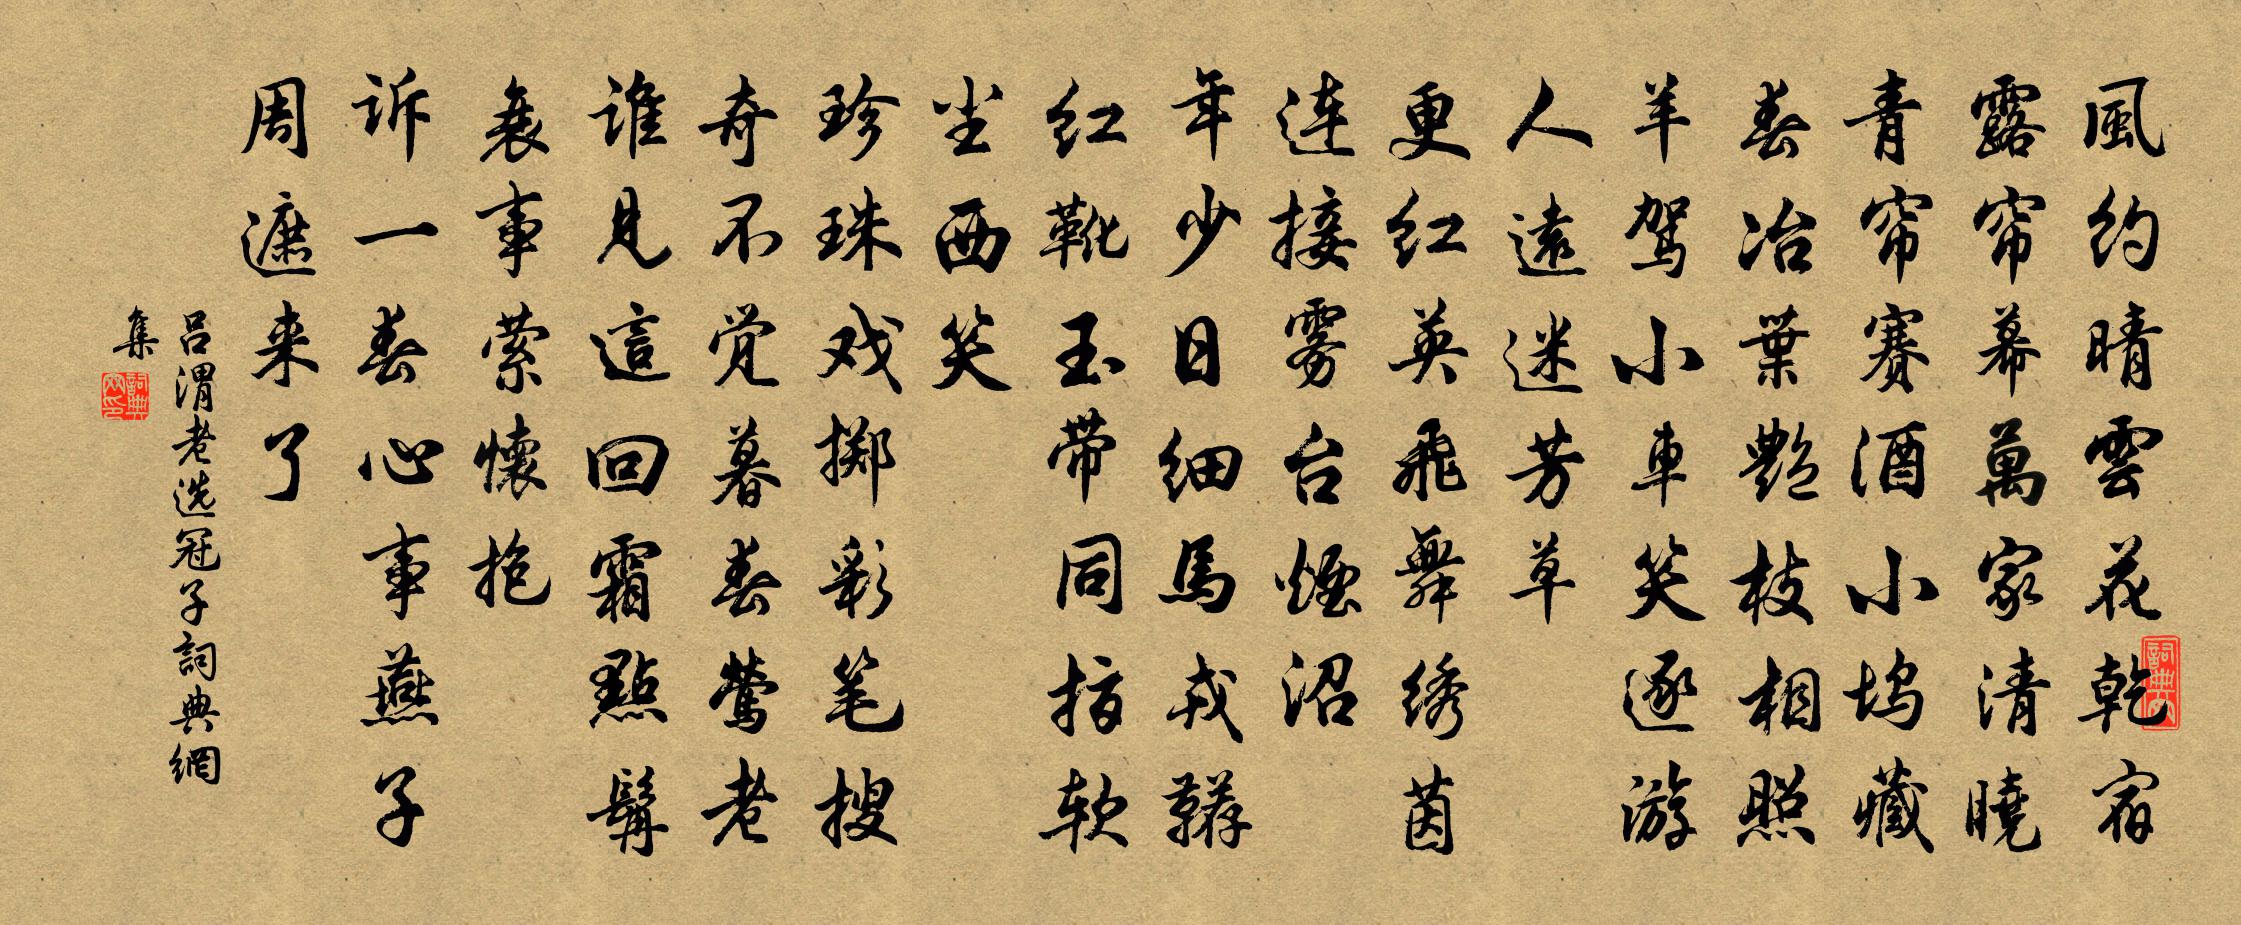 風約晴雲花乾宿
露帘幕萬家清曉
青帘賽酒小坞藏
春冶葉艷枝相照
羊驾小車笑逐游
人遠迷芳草
更红英飛舞绣茵
連接雾台煙沼
年少日细馬戎鞯
红靴玉带同指软
尘西笑
珍珠戏掷彩笔搜
奇不觉暮春莺老
谁見這回霜點鬓
衰事萦懷抱
诉一春心事燕子
周遮来了
吕渭老选冠子詞典網
集
詞典